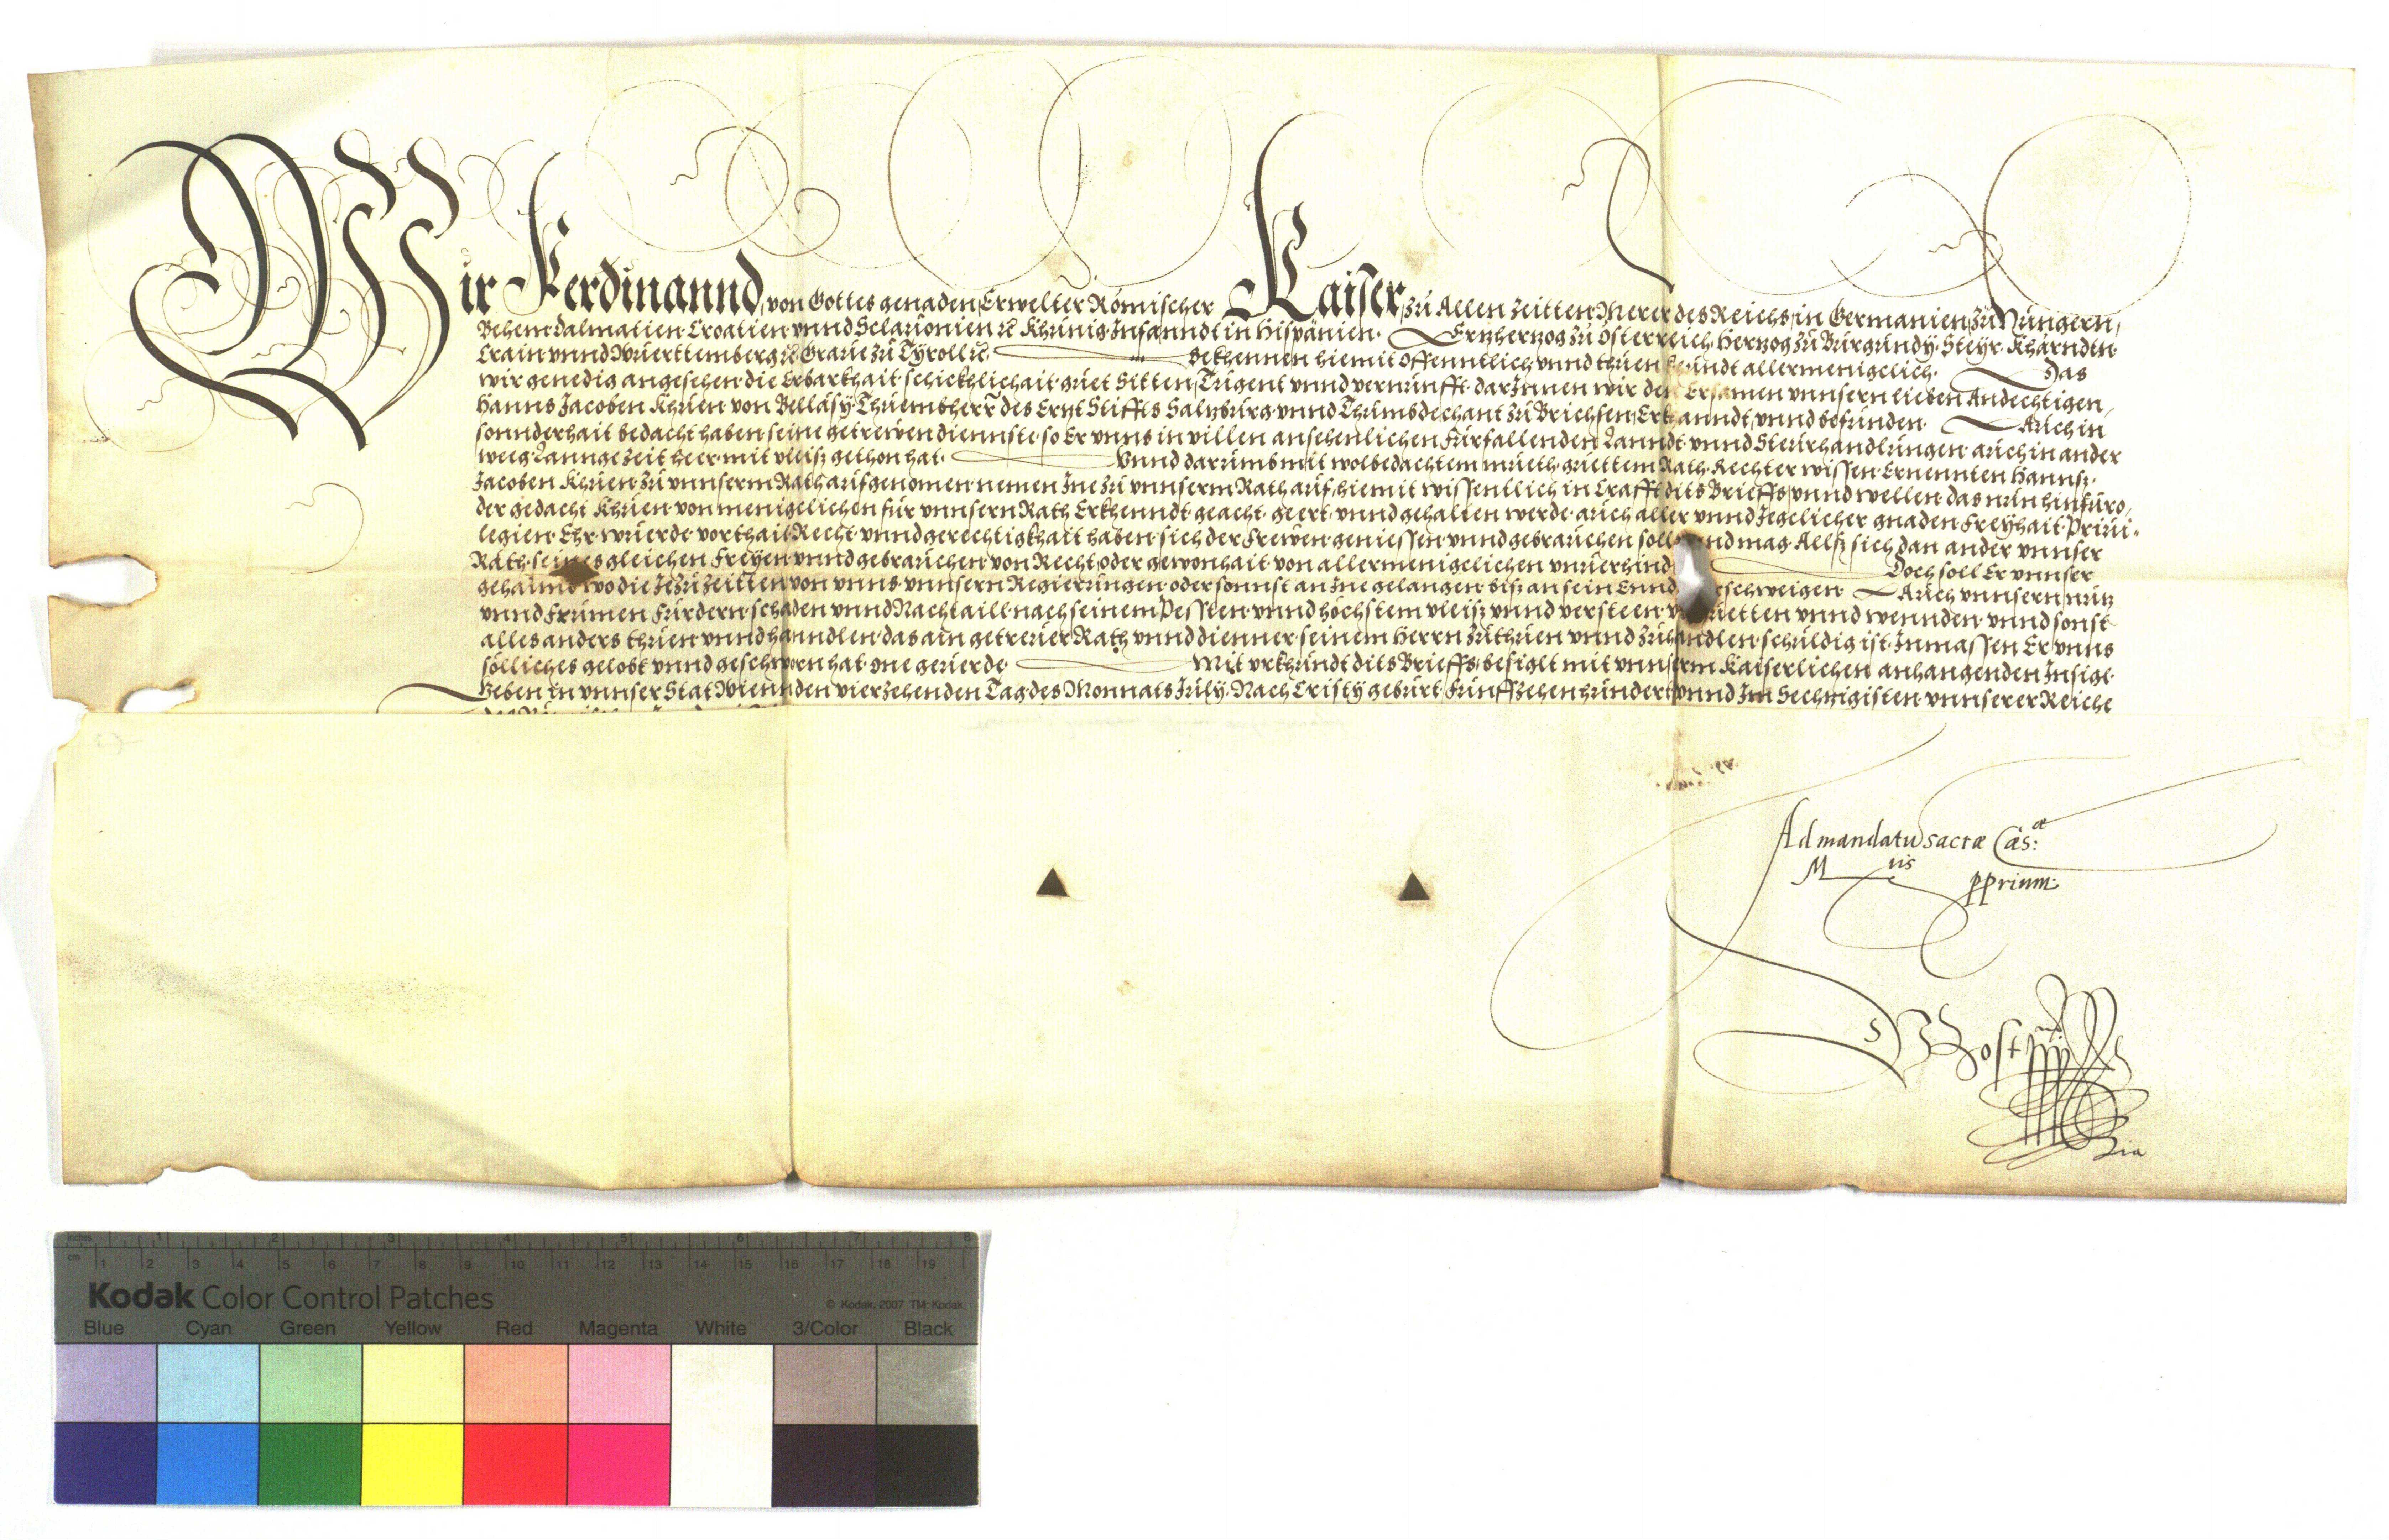 Wir Ferdinannd, von Gottes genaden, Erwelter Römischer Kaiser, zu Allen Zeitten Merer des Reichs, in Germanien, zu Hungern,
Behem, Dalmatien, Croatien, vnnd Sclauonien, rc Khünig, Infanndt in Hispanien, Ertzherzog zu Österreich, Herzog zu Burgundy, Steyr, Kharndtn,
Crain, vnnd Wuerttemberg, rc Graue zu Tyroll, rc Bekhennen hiemit Offenntlich, vnnd thuen khundt allermenigelich, Das
wir genedig angesehen, die Erbarkhait, schickhlichait, guet Sitten, Tugent, vnnd vernunfft, darInnen wir den Ersamen vnnsern lieben Andechtigen,
Hanns Jacoben Khuen von Bellasy, Thuembherr des Ertzt Stiffts Saltzburg, vnnd Thumbdechant zu Brichsen, Erkanndt, vnnd befunden, Auch in
sonnderhait bedacht haben, seine getrewen diennste, so Er vnns in villen ansehenlichen fürfallenden Lanndt, vnnd Steurhandlungen, auch in ander
weeg Lannge Zeit heer, mit vleiss gethon hat, Vnnd darumb mit wolbedachtem mueth, guettem Rath, Rechter wissen, Ernennten Hanns,
Jacoben Khuen, zu vnnserm Rath aufgenomen, nemen Ine zu vnnserm Rath auf, hiemit wissentlich in Crafft dits Brieffs, vnnd wellen, das nun hinfüro,
der gedacht Khuen, von menigelichen für vnnsern Rath Erkhenndt, geacht, geert, vnnd gehalten werde, auch aller vnnd Jegelicher gnaden, Freyhait, Priui-
legien, Ehr, wuerde, vorthail, Recht, vnnd gerechtigkhait haben, sich der frewen, geniessen, vnnd gebrauchen soll nd mag, Allss sich dan ander vnnser
Räth, seines gleichen, freyen vnnd gebrauchen, von Recht, oder gewonhait, von allermenigelichen vnuerhind Doch soll Er vnnser
gehaimb, wo die Je zu Zeitten von vnns, vnnsern Regierrungen, oder sonnst an Ine gelangen, biss an sein Ennd rschweigen, Auch vnnsern nutz
vnnd frumen fürdern, schaden vnnd Nachtaill, nach seinem Pessten, vnnd höchstem vleiss vnnd versteen, rietten vnnd wennden, vnnd sonst
alles anders thuen vnnd hanndlen, das ain getreuer Rath, vnnd dienner, seinem Herrn zu thuen vnnd zu handlen, schuldig ist, Inmassen Er vnns
sölliches gelobt, vnnd geschworn hat, one geuerde, Mit vrkhundt dits Brieffs, besiglt mit vnnserm Kaiserlichen anhangenden Insigl,
Geben in vnnser Stat Wienn, den vierzehenden Tag des Monnats July, Nach Cristy geburt, Funffzehenhundert vnnd Im Sechtzigisten, vnnserer Reiche
Ad mandatu sacrae Caes: ae
M tis pprium:
Kodak Color Control Patches
© Kodak, 2007 TM: Kodak
inches 1 2 3 4 5 6 7 8
cm 1 2 3 4 5 6 7 8 9 10 11 12 13 14 15 16 17 18 19
Blue Cyan Green Yellow Red Magenta White 3/Color Black